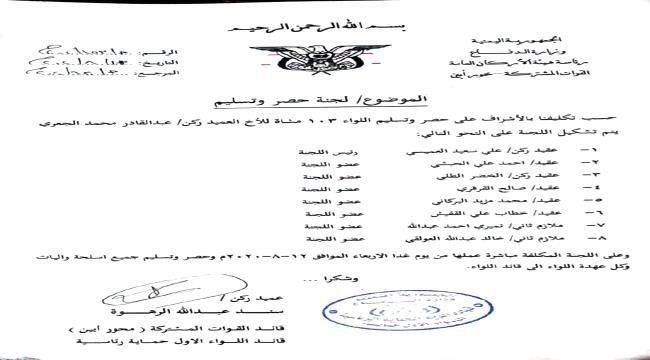 بسم الله الرحمن الرحيم
الجمهورية اليمنية
وزارة الدفاع
رئاسة هيئة الأركان العامة
القوات المشتركة - محور أبين
الرقم:
التاريخ:
المرجع:
الموضوع/ لجنة حصر وتسليم
حسب تكليفنا بالأشراف على حصر وتسليم اللواء ١٠٣ مشاة للأخ العميد ركن/ عبدالقادر محمد الجعري
يتم تشكيل اللجنة على النحو التالي:
١- عقيد ركن/ علي سعيد العميسي رئيس اللجنة
٢- عقيد/ احمد علي الحبشي عضو اللجنة
٣- عقيد ركن/ الخضر الطلي عضو اللجنة
٤- عقيد/ صالح القرفري عضو اللجنة
٥- عقيد/ محمد مزيد البركاني عضو اللجنة
٦- عقيد/ خطاب علي القفيش عضو اللجنة
٧- ملازم ثاني/ نميري احمد عبدالله عضو اللجنة
٨- ملازم ثاني/ خالد عبدالله العولقي عضو اللجنة
وعلى اللجنة المكلفة مباشرة عملها من يوم غدا الاربعاء الموافق ١٢-٨-٢٠٢٠م وحصر وتسليم جميع اسلحة واليات
وكل عهدة اللواء الى قائد اللواء.
وشكرا ...
عميد ركن/
سند عبدالله الرهوة
قائد القوات المشتركة ( محور أبين )
قائد اللواء الاول حماية رئاسية